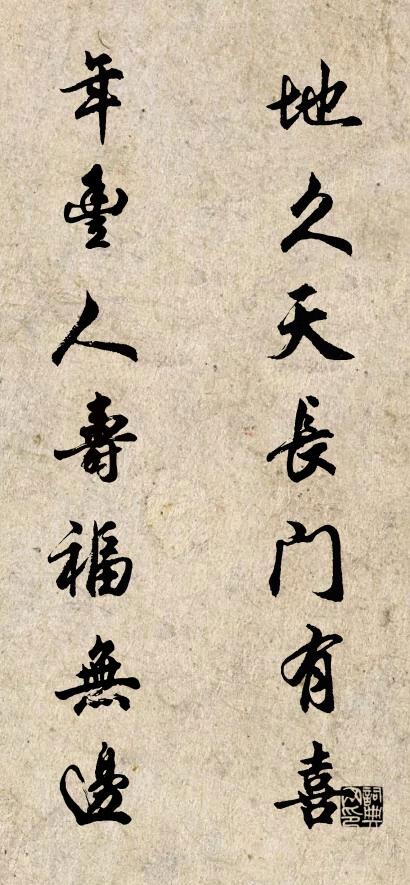 地久天長门有喜
年豐人壽福無邊